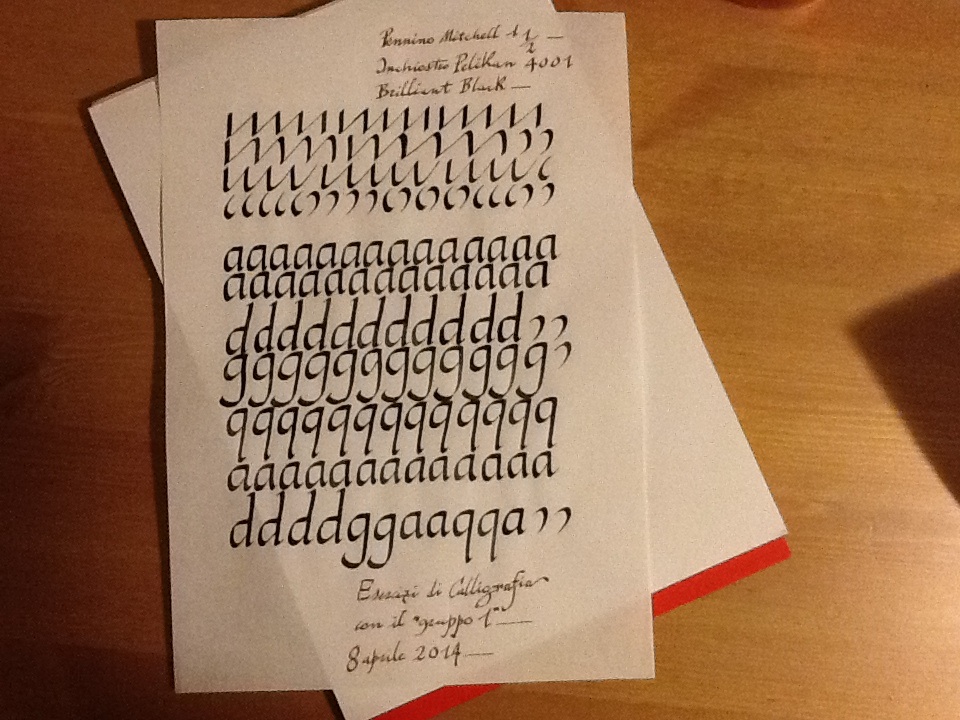 Pennino Mitchell 1 1/2 —
Inchiostro Pelikan 4001
Brilliant Black —
aaaaaaaaaaaaaa
aaaaaaaaaaaaa
ddddddddddd
ggggggggggggg
qqqqqqqqqqqqq
aaaaaaaaaaaaa
ddddggaaqqa
Esercizi di Calligrafia
con il "gruppo 1" —
8 aprile 2014 —